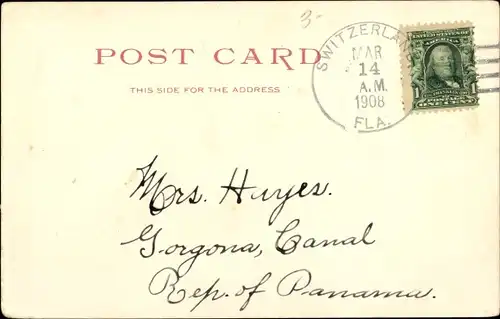 3-
POST CARD
THIS SIDE FOR THE ADDRESS
SWITZERLAND
MAR
14
A.M.
1908
FLA.
1 1
Mrs. Huyes.
Gorgona, Canal
Rep. of Panama.